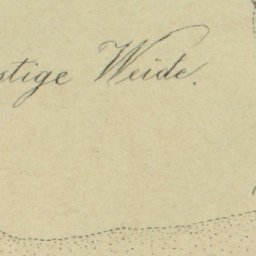 stige Weide.